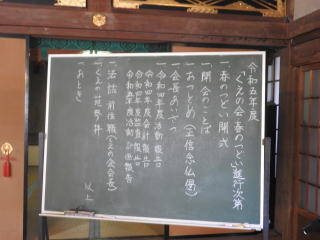 令和五年度
「くえの会 春のつどい」進行次第
一、春のつどい 開式
一、開会のことば
一、おつとめ（正信念仏偈）
一、会長あいさつ
一、令和四年度 活動報告
令和四年度 会計報告
令和四年度 監査報告
令和五年度 活動計画報告
一、法話 前住職（くえの会会長）
「くえの一苑
一、おとき
以上